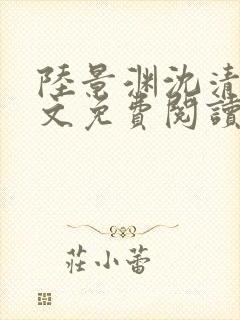 陸景淵沈清
文免費閱讀
莊小蕾